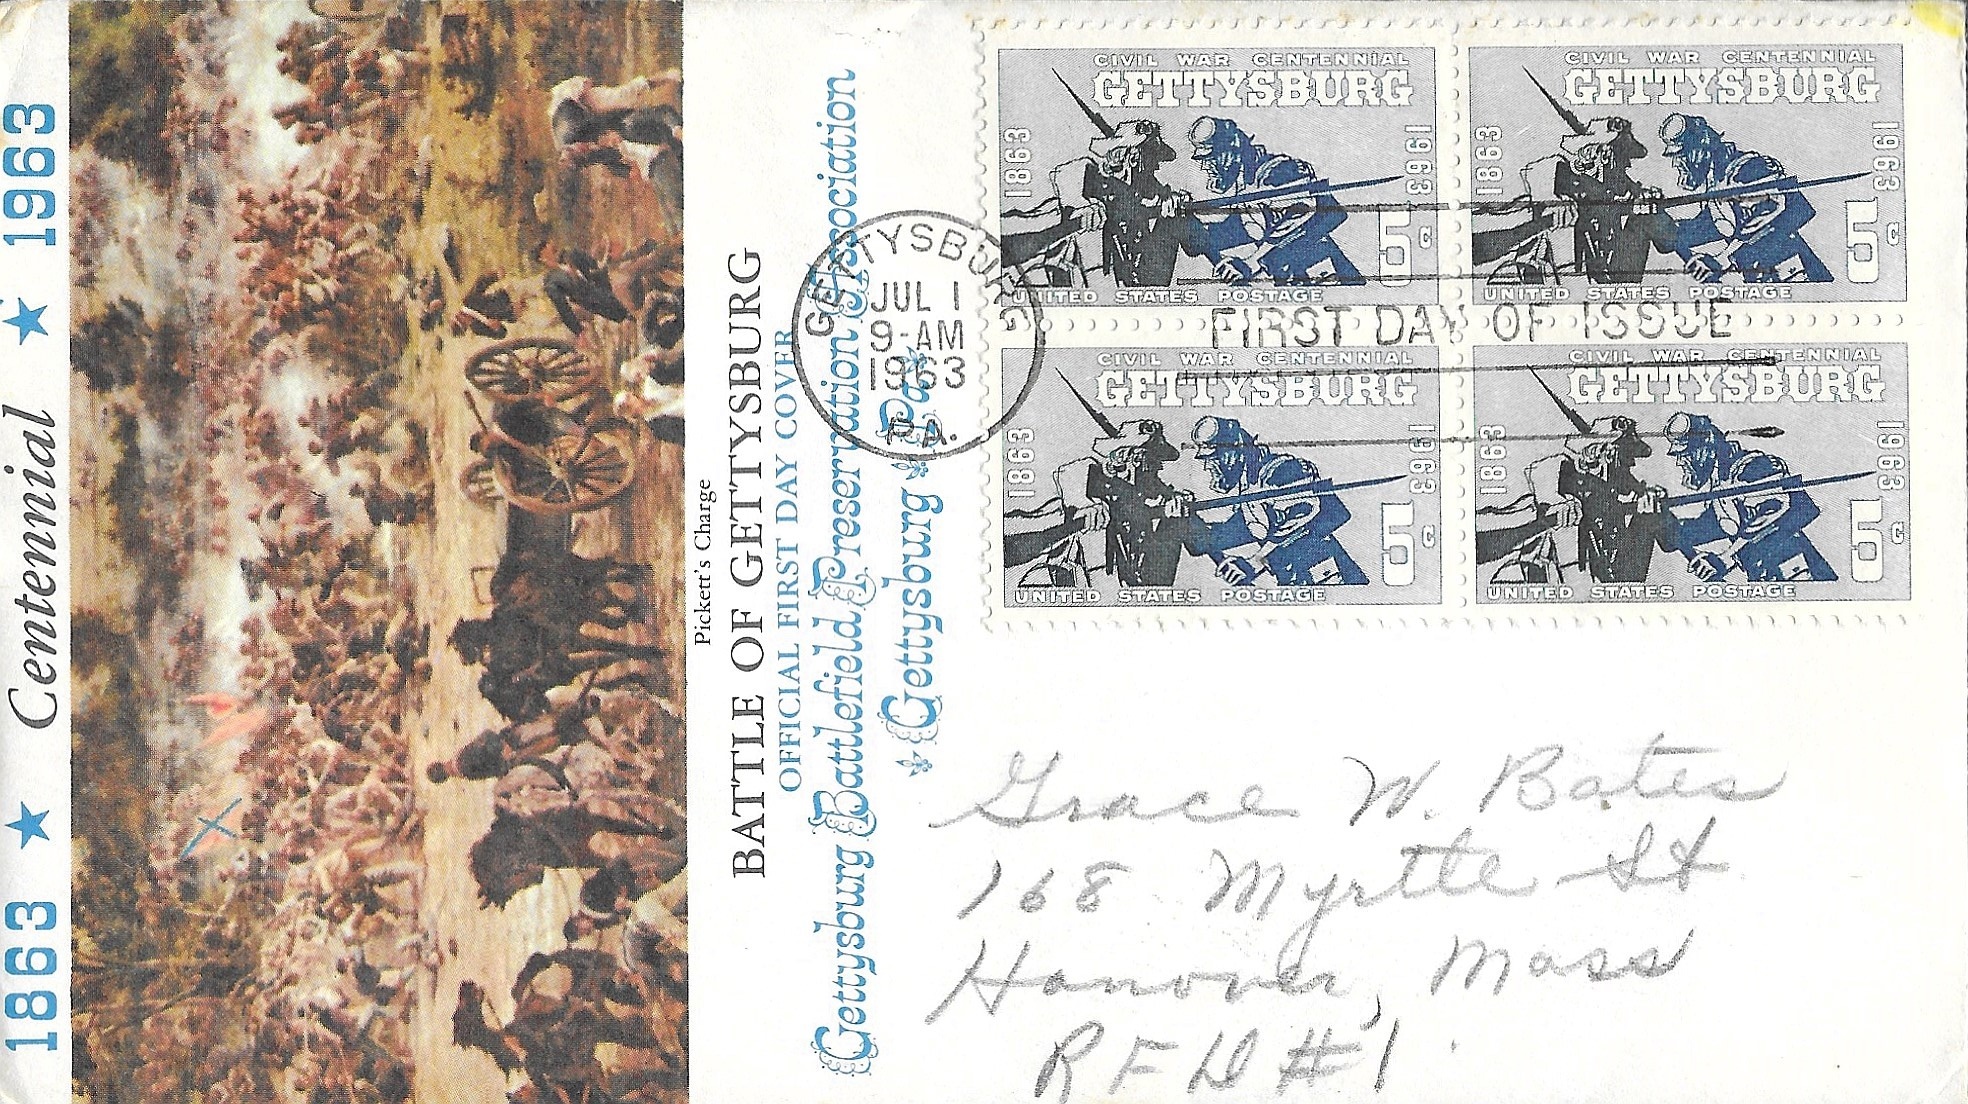 1863 ★ Centennial ★ 1963
Pickett's Charge
BATTLE OF GETTYSBURG
OFFICIAL FIRST DAY COVER
Gettysburg Battlefield Preservation Association
Gettysburg Pa.
GETTYSBURG
JUL 1
9-AM
1963
PA.
FIRST DAY OF ISSUE
CIVIL WAR CENTENNIAL
GETTYSBURG
1863
1963
5c
UNITED STATES POSTAGE
CIVIL WAR CENTENNIAL
GETTYSBURG
1863
1963
5c
UNITED STATES POSTAGE
CIVIL WAR CENTENNIAL
GETTYSBURG
1863
1963
5c
UNITED STATES POSTAGE
CIVIL WAR CENTENNIAL
GETTYSBURG
1863
1963
5c
UNITED STATES POSTAGE
Grace W. Bates
168 Myrtle St
Hanover, Mass
RFD #1